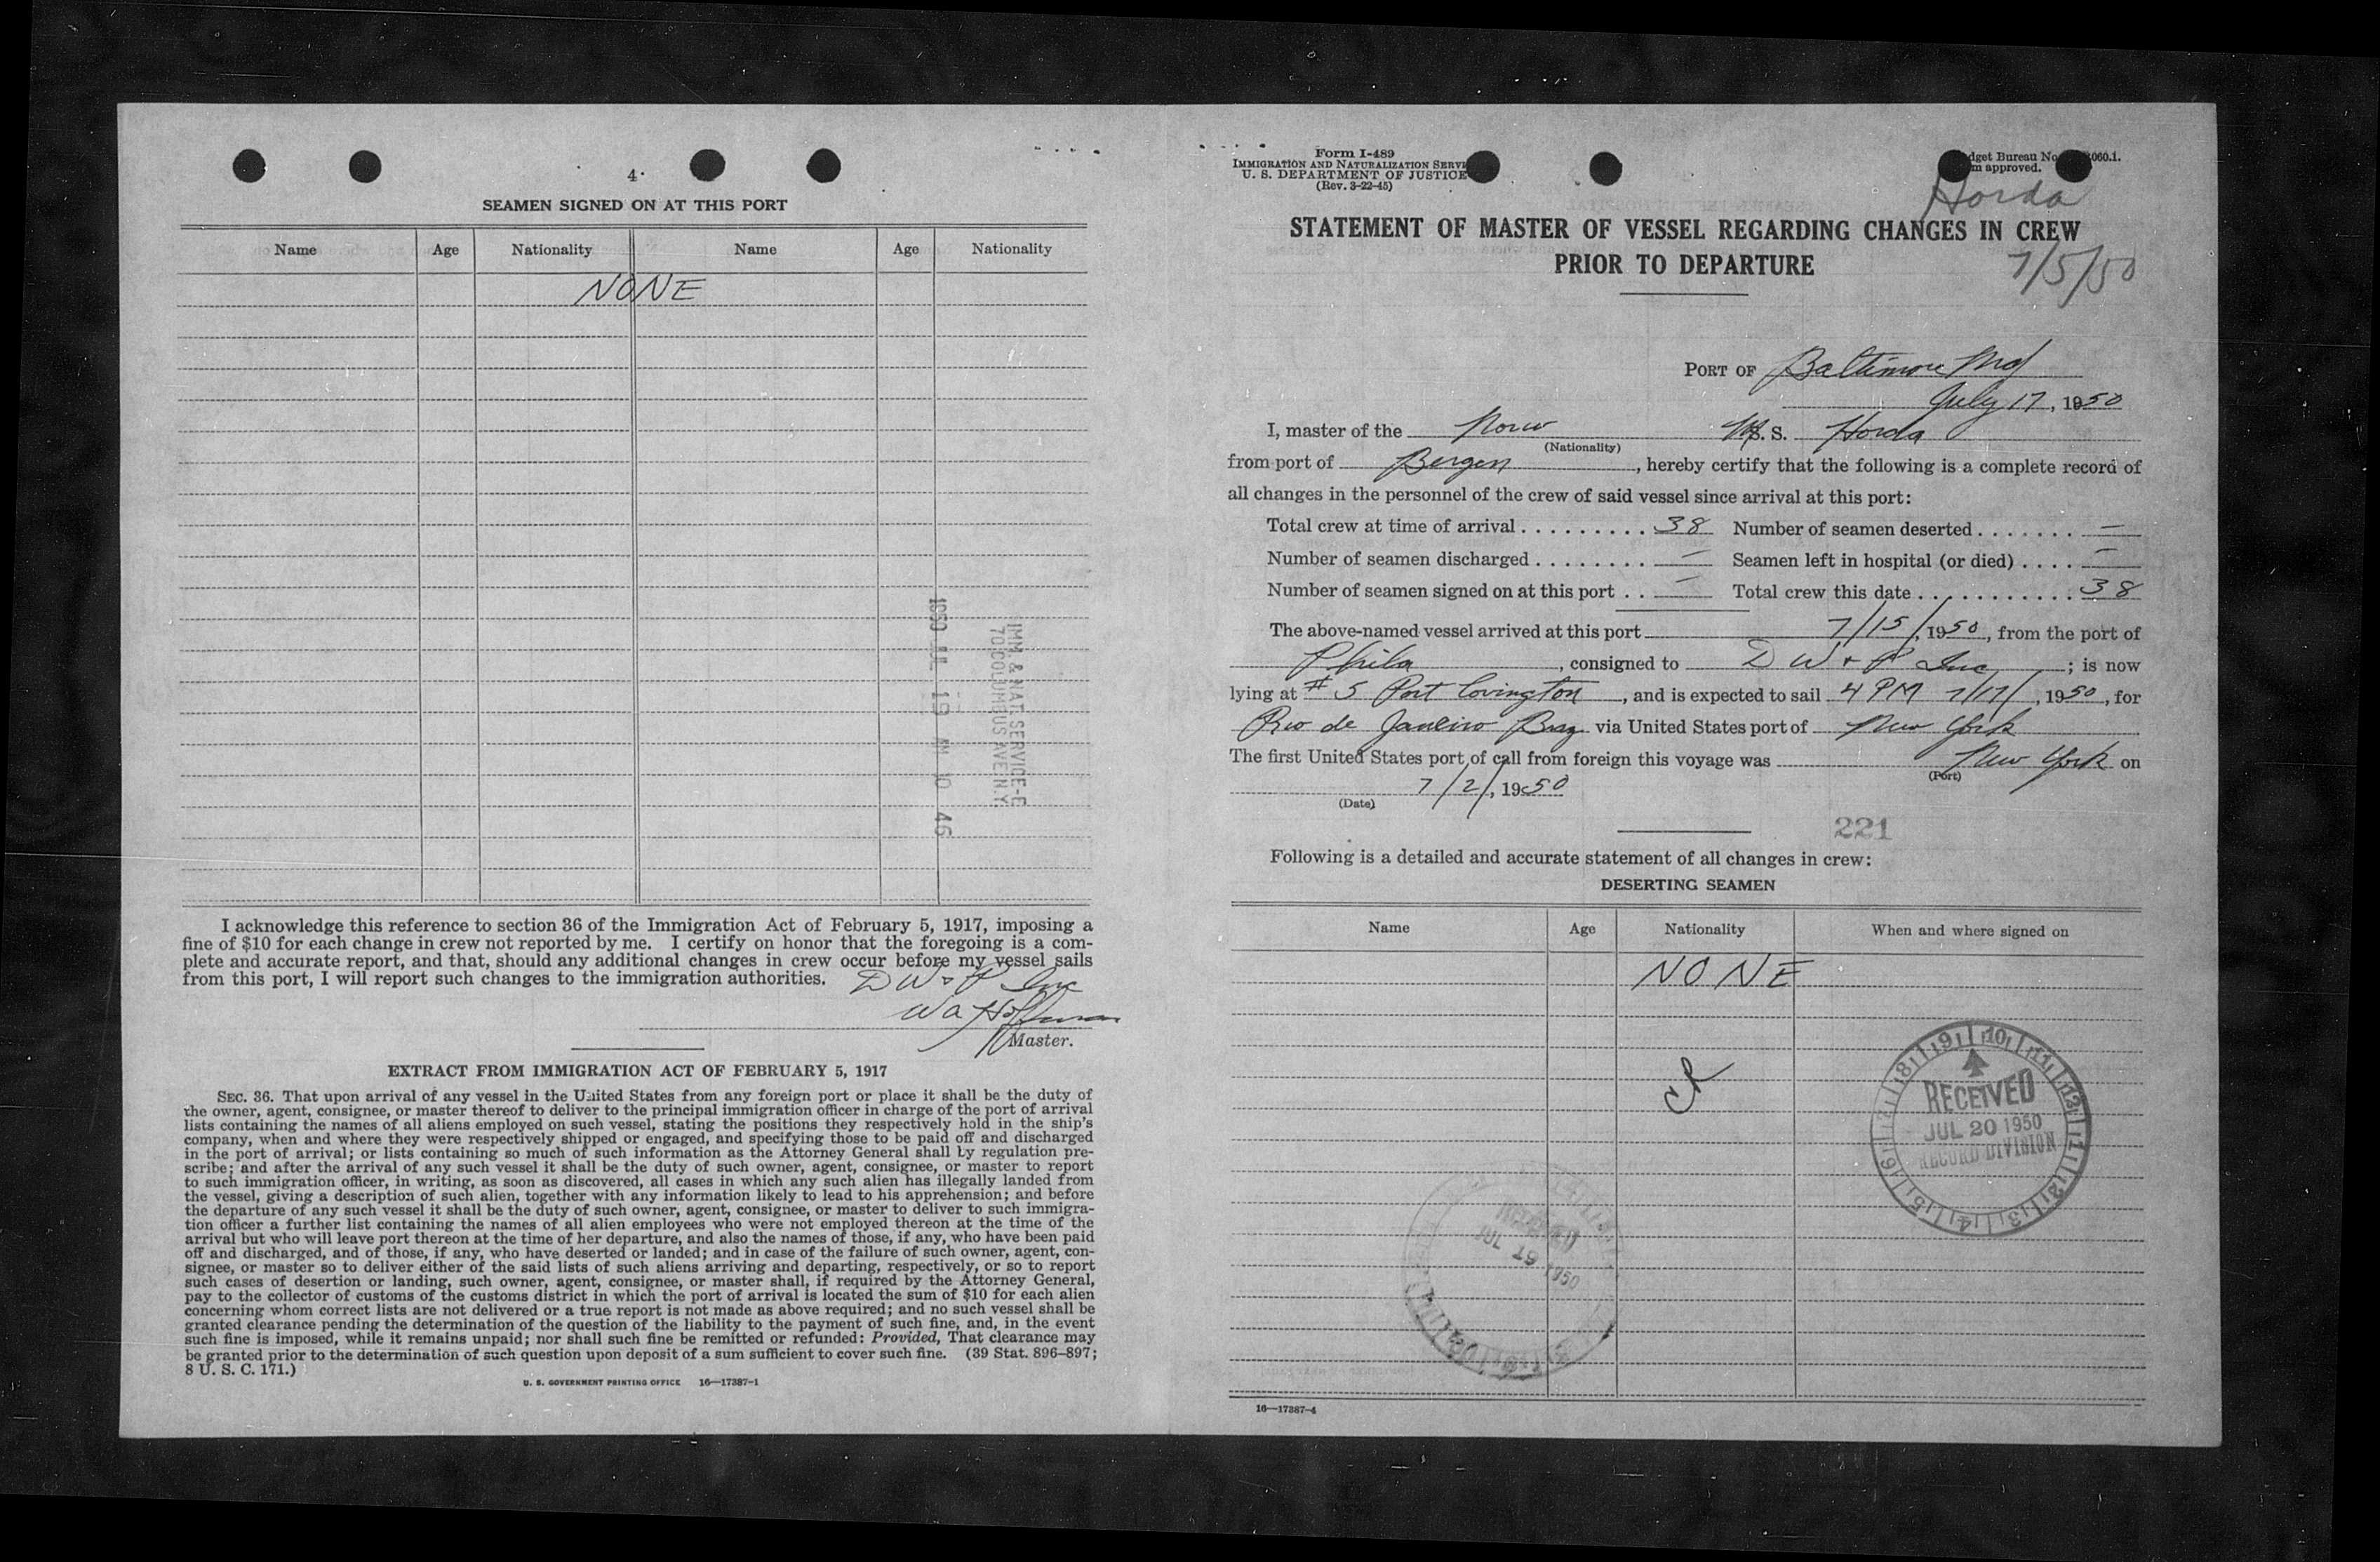 4
SEAMEN SIGNED ON AT THIS PORT
Name Age Nationality Name Age Nationality
NONE
IMM. & NAT. SERVICE-E
70 COLUMBUS AVE N.Y.
1950 JUL 19 AM 10 46
I acknowledge this reference to section 36 of the Immigration Act of February 5, 1917, imposing a
fine of $10 for each change in crew not reported by me. I certify on honor that the foregoing is a com-
plete and accurate report, and that, should any additional changes in crew occur before my vessel sails
from this port, I will report such changes to the immigration authorities.
D W & P Inc
W a Hoffman
Master.
EXTRACT FROM IMMIGRATION ACT OF FEBRUARY 5, 1917
SEC. 36. That upon arrival of any vessel in the United States from any foreign port or place it shall be the duty of
the owner, agent, consignee, or master thereof to deliver to the principal immigration officer in charge of the port of arrival
lists containing the names of all aliens employed on such vessel, stating the positions they respectively hold in the ship's
company, when and where they were respectively shipped or engaged, and specifying those to be paid off and discharged
in the port of arrival; or lists containing so much of such information as the Attorney General shall by regulation pre-
scribe; and after the arrival of any such vessel it shall be the duty of such owner, agent, consignee, or master to report
to such immigration officer, in writing, as soon as discovered, all cases in which any such alien has illegally landed from
the vessel, giving a description of such alien, together with any information likely to lead to his apprehension; and before
the departure of any such vessel it shall be the duty of such owner, agent, consignee, or master to deliver to such immigra-
tion officer a further list containing the names of all alien employees who were not employed thereon at the time of the
arrival but who will leave port thereon at the time of her departure, and also the names of those, if any, who have been paid
off and discharged, and of those, if any, who have deserted or landed; and in case of the failure of such owner, agent, con-
signee, or master so to deliver either of the said lists of such aliens arriving and departing, respectively, or so to report
such cases of desertion or landing, such owner, agent, consignee, or master shall, if required by the Attorney General,
pay to the collector of customs of the customs district in which the port of arrival is located the sum of $10 for each alien
concerning whom correct lists are not delivered or a true report is not made as above required; and no such vessel shall be
granted clearance pending the determination of the question of the liability to the payment of such fine, and, in the event
such fine is imposed, while it remains unpaid; nor shall such fine be remitted or refunded: Provided, That clearance may
be granted prior to the determination of such question upon deposit of a sum sufficient to cover such fine. (39 Stat. 896-897;
8 U. S. C. 171.)
U. S. GOVERNMENT PRINTING OFFICE 16—17387-1
Form I-489
IMMIGRATION AND NATURALIZATION SERVI
U. S. DEPARTMENT OF JUSTICE
(Rev. 3-22-45)
dget Bureau No. 060.1.
m approved.
Horda
STATEMENT OF MASTER OF VESSEL REGARDING CHANGES IN CREW
PRIOR TO DEPARTURE
7/5/50
PORT OF Baltimore Md
July 17, 1950
I, master of the Norw M. S. Horda
(Nationality)
from port of Bergen, hereby certify that the following is a complete record of
all changes in the personnel of the crew of said vessel since arrival at this port:
Total crew at time of arrival . . . . . . . . . 38 Number of seamen deserted . . . . . . . —
Number of seamen discharged . . . . . . . . — Seamen left in hospital (or died) . . . . —
Number of seamen signed on at this port . . — Total crew this date . . . . . . . . . . . . 38
The above-named vessel arrived at this port 7/15/, 1950, from the port of
Phila, consigned to D W & P Inc; is now
lying at # 5 Port Covington, and is expected to sail 4 PM 7/17/, 1950, for
Rio de Janeiro Braz via United States port of New York
The first United States port of call from foreign this voyage was New York on
(Port)
7/2/, 1950
(Date)
221
Following is a detailed and accurate statement of all changes in crew:
DESERTING SEAMEN
Name Age Nationality When and where signed on
NONE
RECEIVED
JUL 20 1950
RECORD DIVISION
RECEIVED
JUL 19 1950
16—17387-4